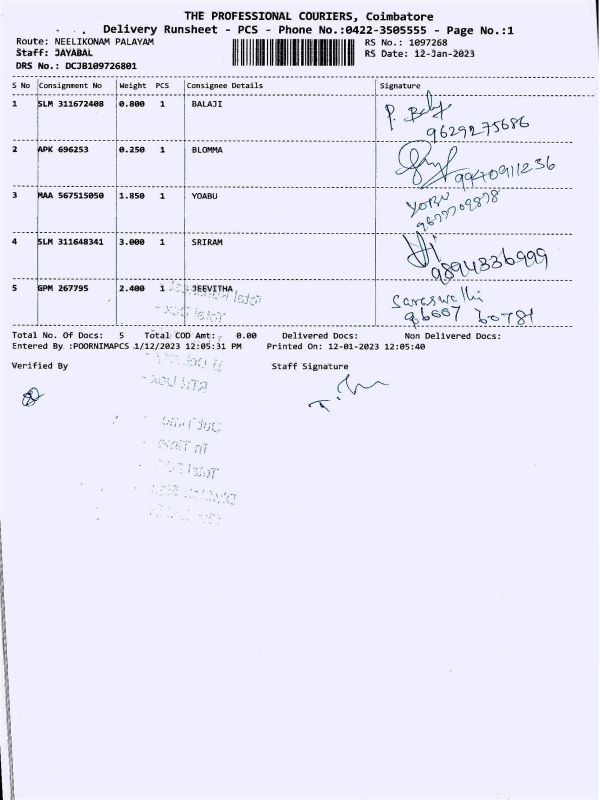 THE PROFESSIONAL COURIERS, Coimbatore
Delivery Runsheet - PCS - Phone No.:0422-3505555 - Page No.:1
Route: NEELIKONAM PALAYAM RS No.: 1097268
Staff: JAYABAL RS Date: 12-Jan-2023
DRS No.: DCJB109726801
S No Consignment No Weight PCS Consignee Details Signature
1 SLM 311672408 0.800 1 BALAJI P. Balaji
9629275686
2 APK 696253 0.250 1 BLOMMA
9940911236
3 MAA 567515050 1.850 1 YOABU YOBU
9677709878
4 SLM 311648341 3.000 1 SRIRAM
9894336999
5 GPM 267795 2.400 1 JEEVITHA Saraswathi
96007 60781
Total No. Of Docs: 5 Total COD Amt: 0.00 Delivered Docs: Non Delivered Docs:
Entered By :POORNIMAPCS 1/12/2023 12:05:31 PM Printed On: 12-01-2023 12:05:40
Verified By Staff Signature
Out Time
In Time